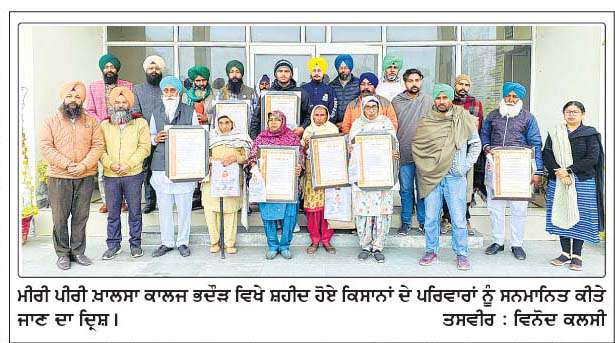 ਮੀਰੀ ਪੀਰੀ ਖ਼ਾਲਸਾ ਕਾਲਜ ਭਦੌੜ ਵਿਖੇ ਸ਼ਹੀਦ ਹੋਏ ਕਿਸਾਨਾਂ ਦੇ ਪਰਿਵਾਰਾਂ ਨੂੰ ਸਨਮਾਨਿਤ ਕੀਤੇ
ਜਾਣ ਦਾ ਦ੍ਰਿਸ਼। ਤਸਵੀਰ : ਵਿਨੋਦ ਕਲਸੀ